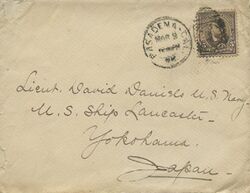 PASADENA, CAL.
MAR 9
Lieut. David Daniels U.S. Navy
U.S. Ship Lancaster
Yokohama
Japan